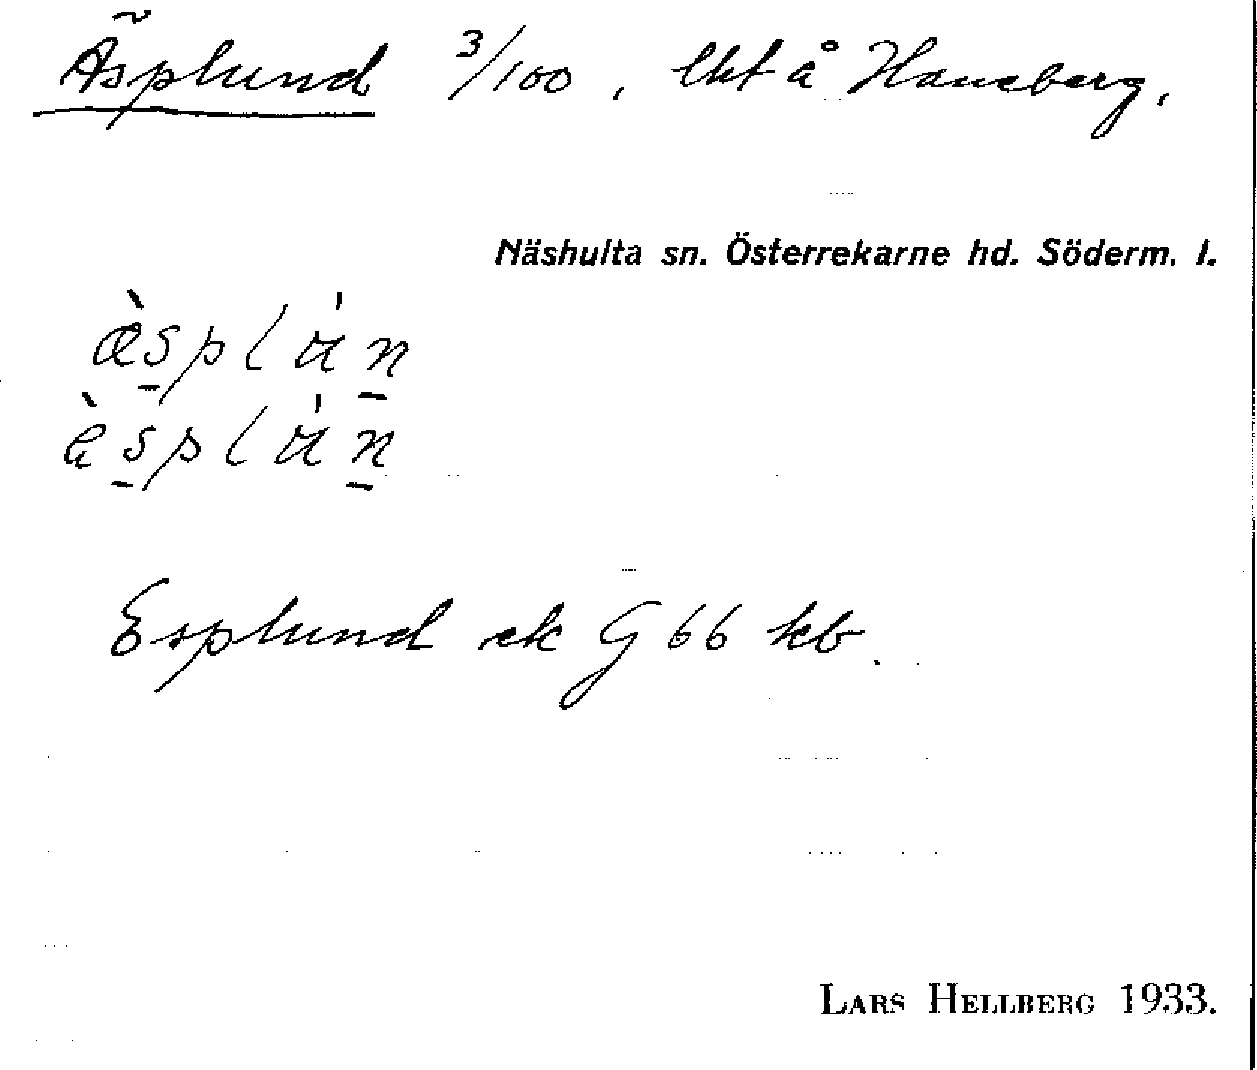 Äsplund 3/100, lht å Haneberg.
Näshulta sn. Österrekarne hd. Söderm. l.
æ̀splún
èsplún
Esplund ek G 66 kb.
LARS HELLBERG 1933.